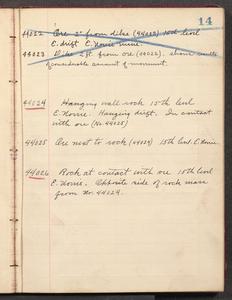 14
44022 Ore 2" from dike (44023) 15th level
E. drift E. Norrie mine.
44023 Dike 2 ft. from ore (44022). shows
of considerable amount of movement.
44024 Hanging wall rock 15th level
E. Norrie. Hanging drift. In contact
with ore (No. 44025)
44025 Ore next to rock (44024) 15th level E. Norrie
44026 Rock at contact with ore 15th level
E. Norrie. Opposite side of rock mass
from No. 44024.